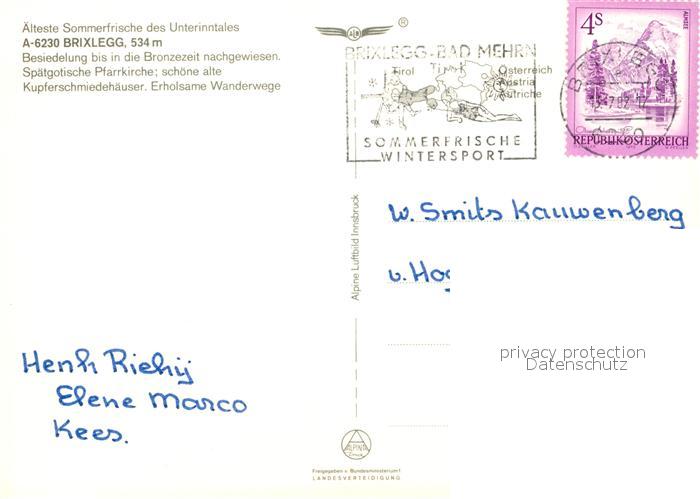 Älteste Sommerfrische des Unterinntales
A-6230 BRIXLEGG, 534 m
Besiedelung bis in die Bronzezeit nachgewiesen.
Spätgotische Pfarrkirche; schöne alte
Kupferschmiedehäuser. Erholsame Wanderwege
®
BRIXLEGG-BAD MEHRN
Tirol Tirol Österreich
Austria
Autriche
SOMMERFRISCHE
WINTERSPORT
4S
ALMSEE
BRIXLEGG
6230
REPUBLIK ÖSTERREICH
Alpine Luftbild Innsbruck
W. Smits Kauwenberg
v. Hog
privacy protection
Datenschutz
Henk Riekij
Elene Marco
Kees.
ALPINE
Freigegeben v. Bundesministerium f.
LANDESVERTEIDIGUNG